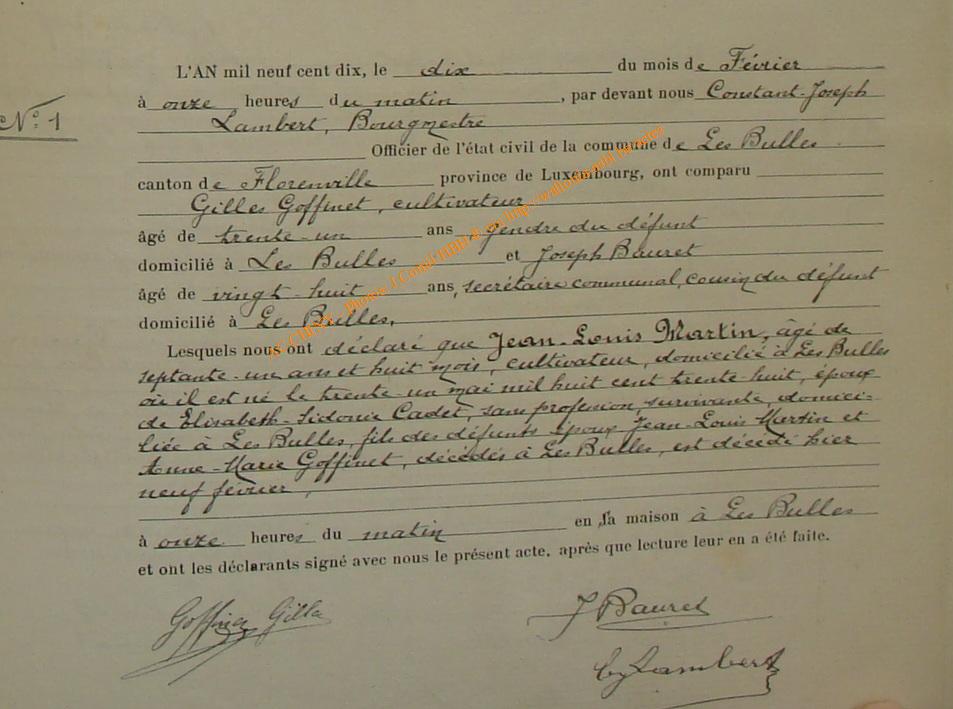 L'AN mil neuf cent dix, le dix du mois de Février
à onze heures du matin, par devant nous Constant-Joseph
Nº 1
Lambert, Bourgmestre
Officier de l'état civil de la commune de Les Bulles
canton de Florenville province de Luxembourg, ont comparu
Gilles Goffinet, cultivateur
âgé de trente-un ans, gendre du défunt
domicilié à Les Bulles et Joseph Bauret
âgé de vingt-huit ans, secrétaire communal, cousin du défunt
domicilié à Les Bulles,
Lesquels nous ont déclaré que Jean-Louis Martin, âgé de
septante-un ans et huit mois, cultivateur, domicilié à Les Bulles
où il est né le trente-un mai mil huit cent trente-huit, époux
de Elisabeth-Sidonie Cadet, sans profession, survivante, domici-
liée à Les Bulles, fils des défunts époux Jean-Louis Martin et
Anne-Marie Goffinet, décédés à Les Bulles, est décédé hier
neuf février,
à onze heures du matin en sa maison à Les Bulles
et ont les déclarants signé avec nous le présent acte, après que lecture leur en a été faite.
Goffinet Gilles
J Bauret
Lambert